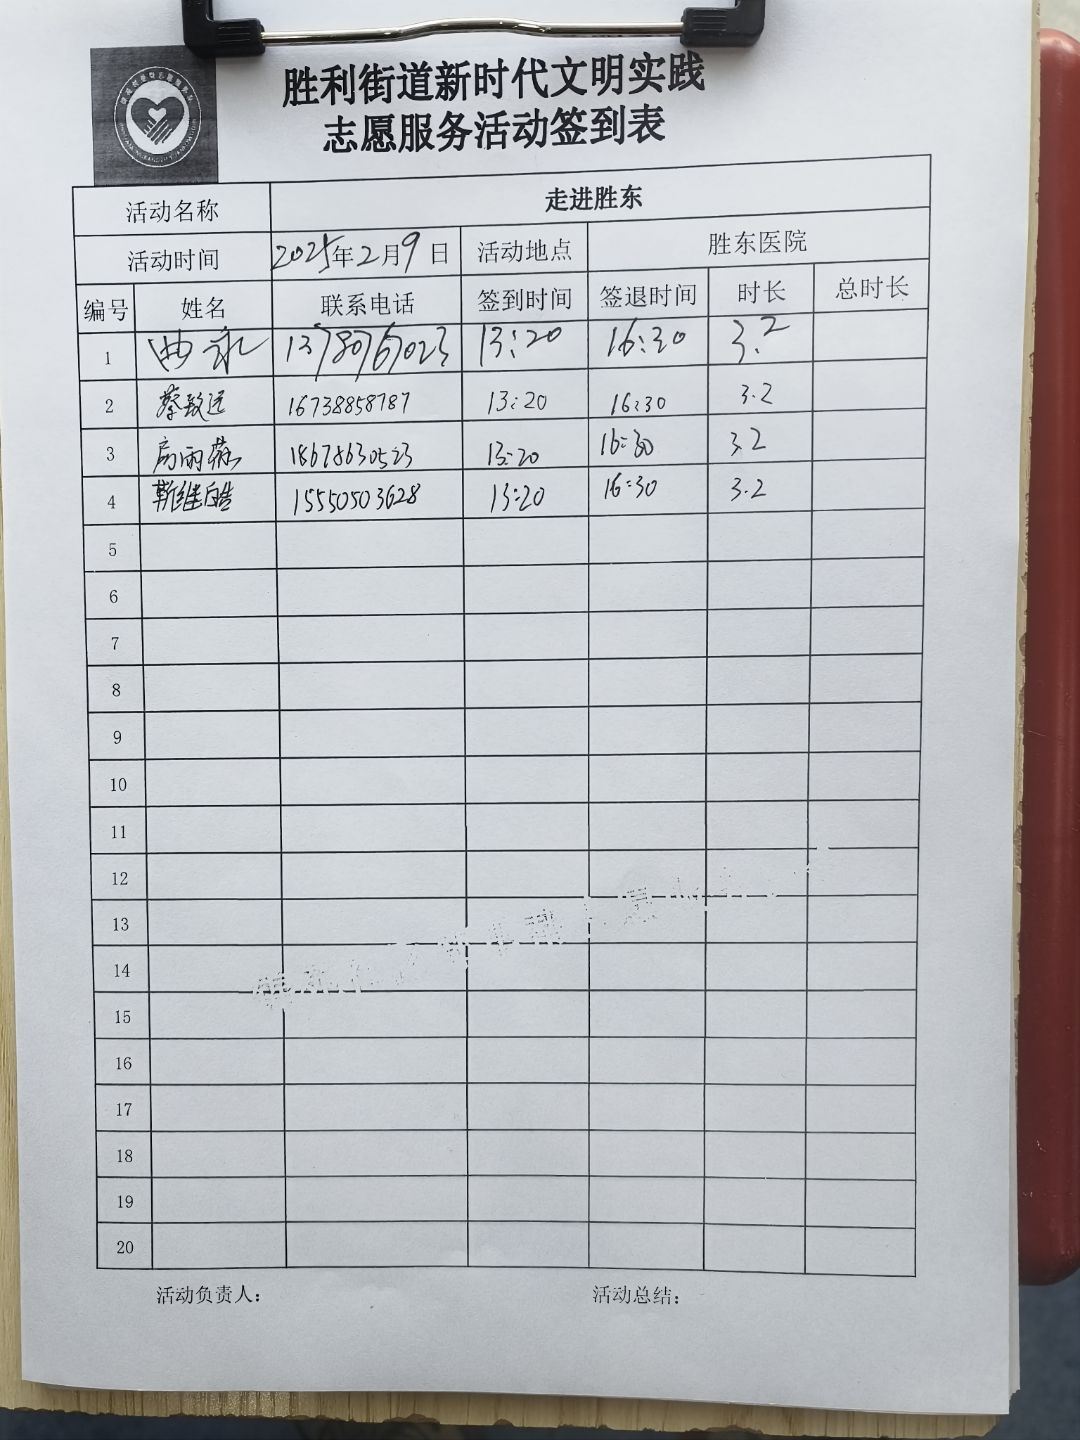 胜利街道新时代文明实践
志愿服务活动签到表
活动名称 走进胜东
活动时间 2025年2月9日 活动地点 胜东医院
编号 姓名 联系电话 签到时间 签退时间 时长 总时长
1 曲永 13780767023 13:20 16:30 3.2
2 蔡致远 16738858787 13:20 16:30 3.2
3 房雨薇 18678630523 13:20 16:30 3.2
4 靳继皓 15550503628 13:20 16:30 3.2
5
6
7
8
9
10
11
12
13
14
15
16
17
18
19
20
活动负责人： 活动总结：